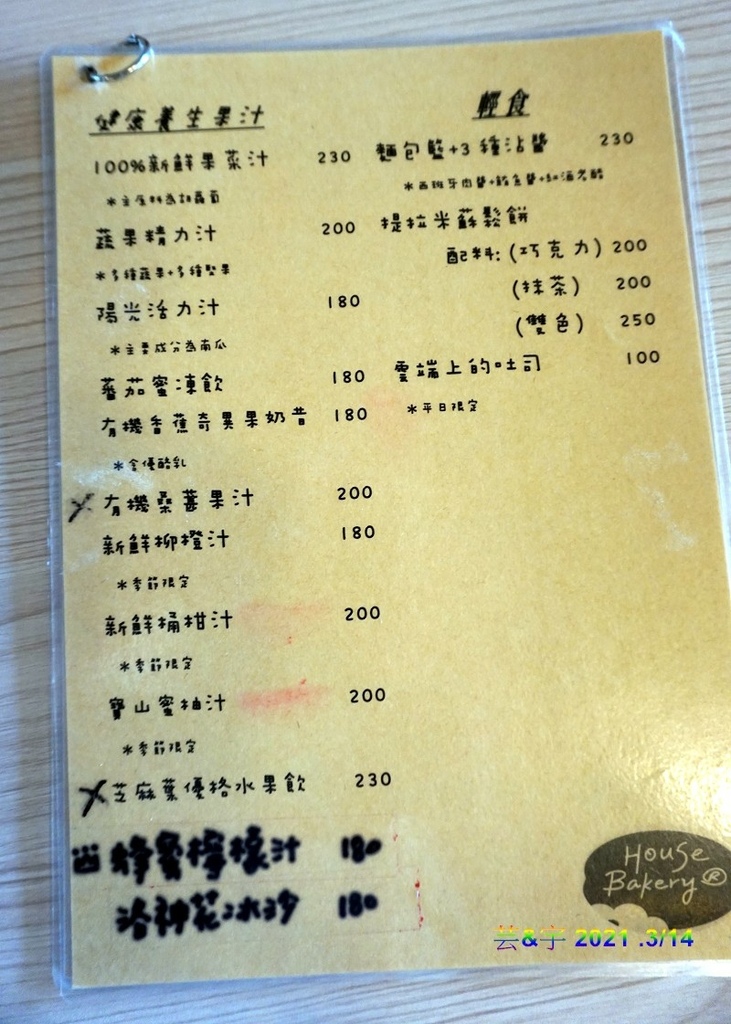 健康養生果汁
100%新鮮果菜汁 230
*主原料為胡蘿蔔
蔬果精力汁 200
*多種蔬果+多種堅果
陽光活力汁 180
*主要成分為南瓜
蕃茄蜜凍飲 180
有機香蕉奇異果奶昔 180
*含優酪乳
有機桑葚果汁 200
新鮮柳橙汁 180
*季節限定
新鮮桶柑汁 200
*季節限定
寶山蜜柚汁 200
*季節限定
芝麻葉優格水果飲 230
蜂蜜檸檬汁 180
洛神花冰沙 180
輕食
麵包籃+3種沾醬 230
*西班牙肉醬+鮪魚醬+紅酒老醋
提拉米蘇鬆餅
配料:(巧克力) 200
(抹茶) 200
(雙色) 250
雲端上的吐司 100
*平日限定
House
Bakery®
芸&宇 2021 .3/14